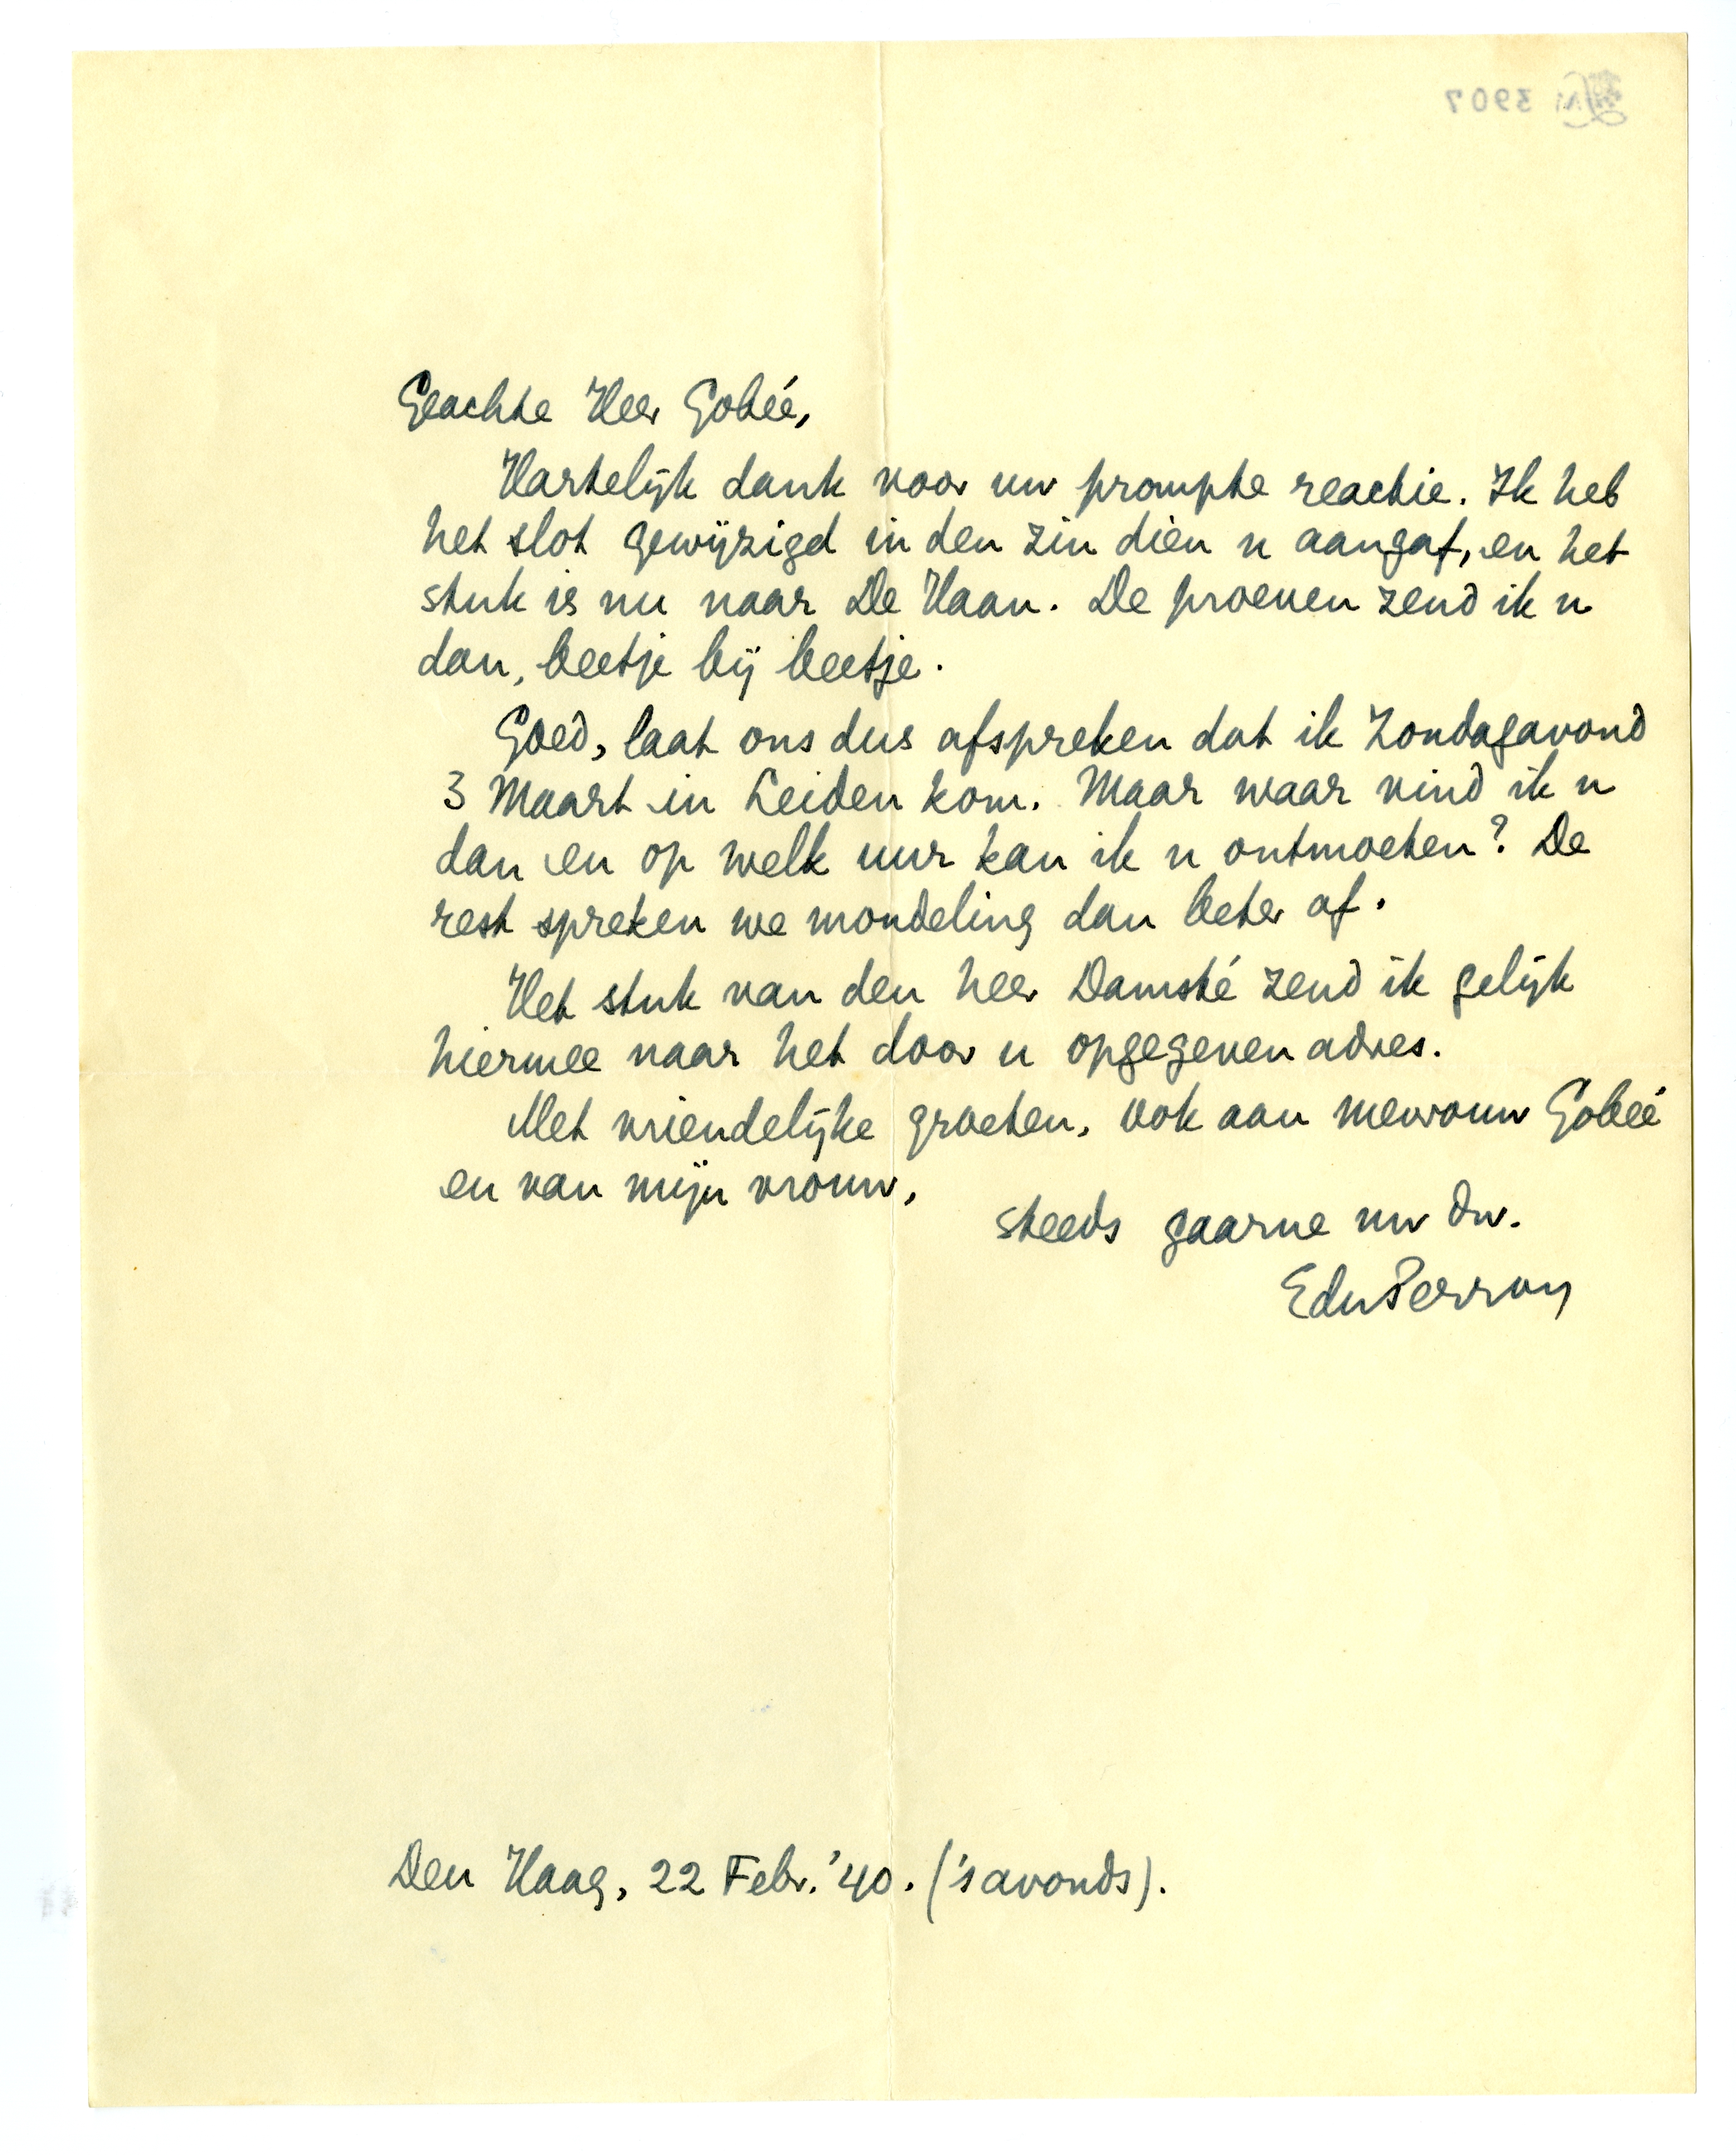 Geachte Heer Gobée,
Hartelijk dank voor uw prompte reactie. Ik heb
het slot gewijzigd in den zin dien u aangaf, en het
stuk is nu naar De Haan. De proeven zend ik u
dan, beetje bij beetje.
Goed, laat ons dus afspreken dat ik Zondagavond
3 Maart in Leiden kom. Maar waar vind ik u
dan en op welk uur kan ik u ontmoeten? De
rest spreken we mondeling dan beter af.
Het stuk van den heer Damsté zend ik gelijk
hiermee naar het door u opgegeven adres.
Met vriendelijke groeten, ook aan mevrouw Gobée
en van mijn vrouw,
steeds gaarne uw dw.
EduPerron
Den Haag, 22 Febr. '40. ('s avonds).
3907